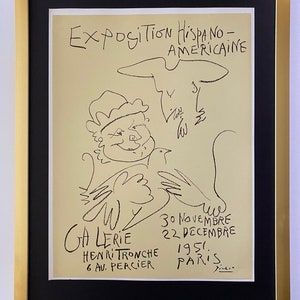 EXPOSITION HISPANO-
AMERICAINE
GALERIE
HENRI TRONCHE
6 AV. PERCIER
30 NOVEMBRE
22 DECEMBRE
1951
PARIS
Picasso